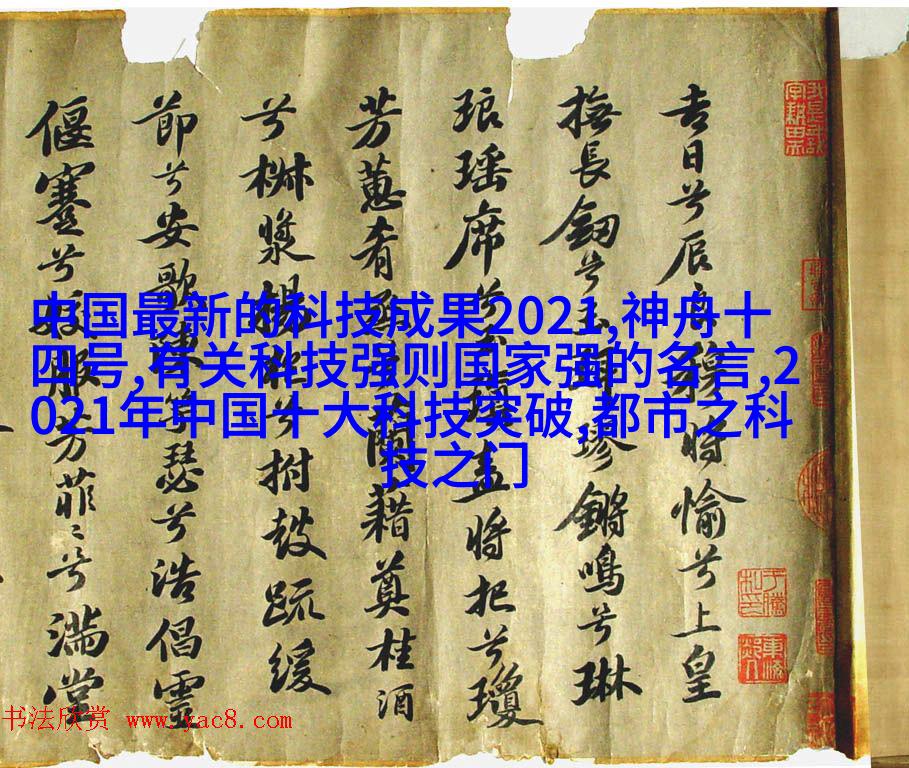 吉日兮辰良穆將愉兮上皇
撫長釼兮玉珥璆鏘鳴兮琳
琅瑤席兮玉瑱盍將把兮瓊
芳蕙肴蒸兮蘭藉奠桂酒
兮椒漿揚枹兮拊鼓疏緩
節兮安歌陳竽瑟兮浩倡靈
偃蹇兮姣服芳菲〻兮滿堂
中国最新的科技成果2021,神舟十
四号,有关科技强则国家强的名言,2
021年中国十大科技突破,都市之科
技之门
书法欣赏 www.yac8.com